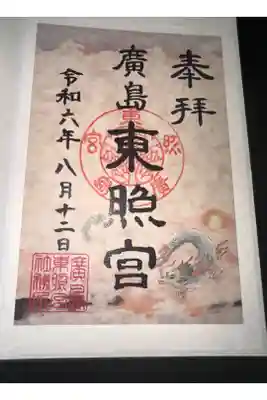 奉拝
廣島東照宮
令和六年八月十二日